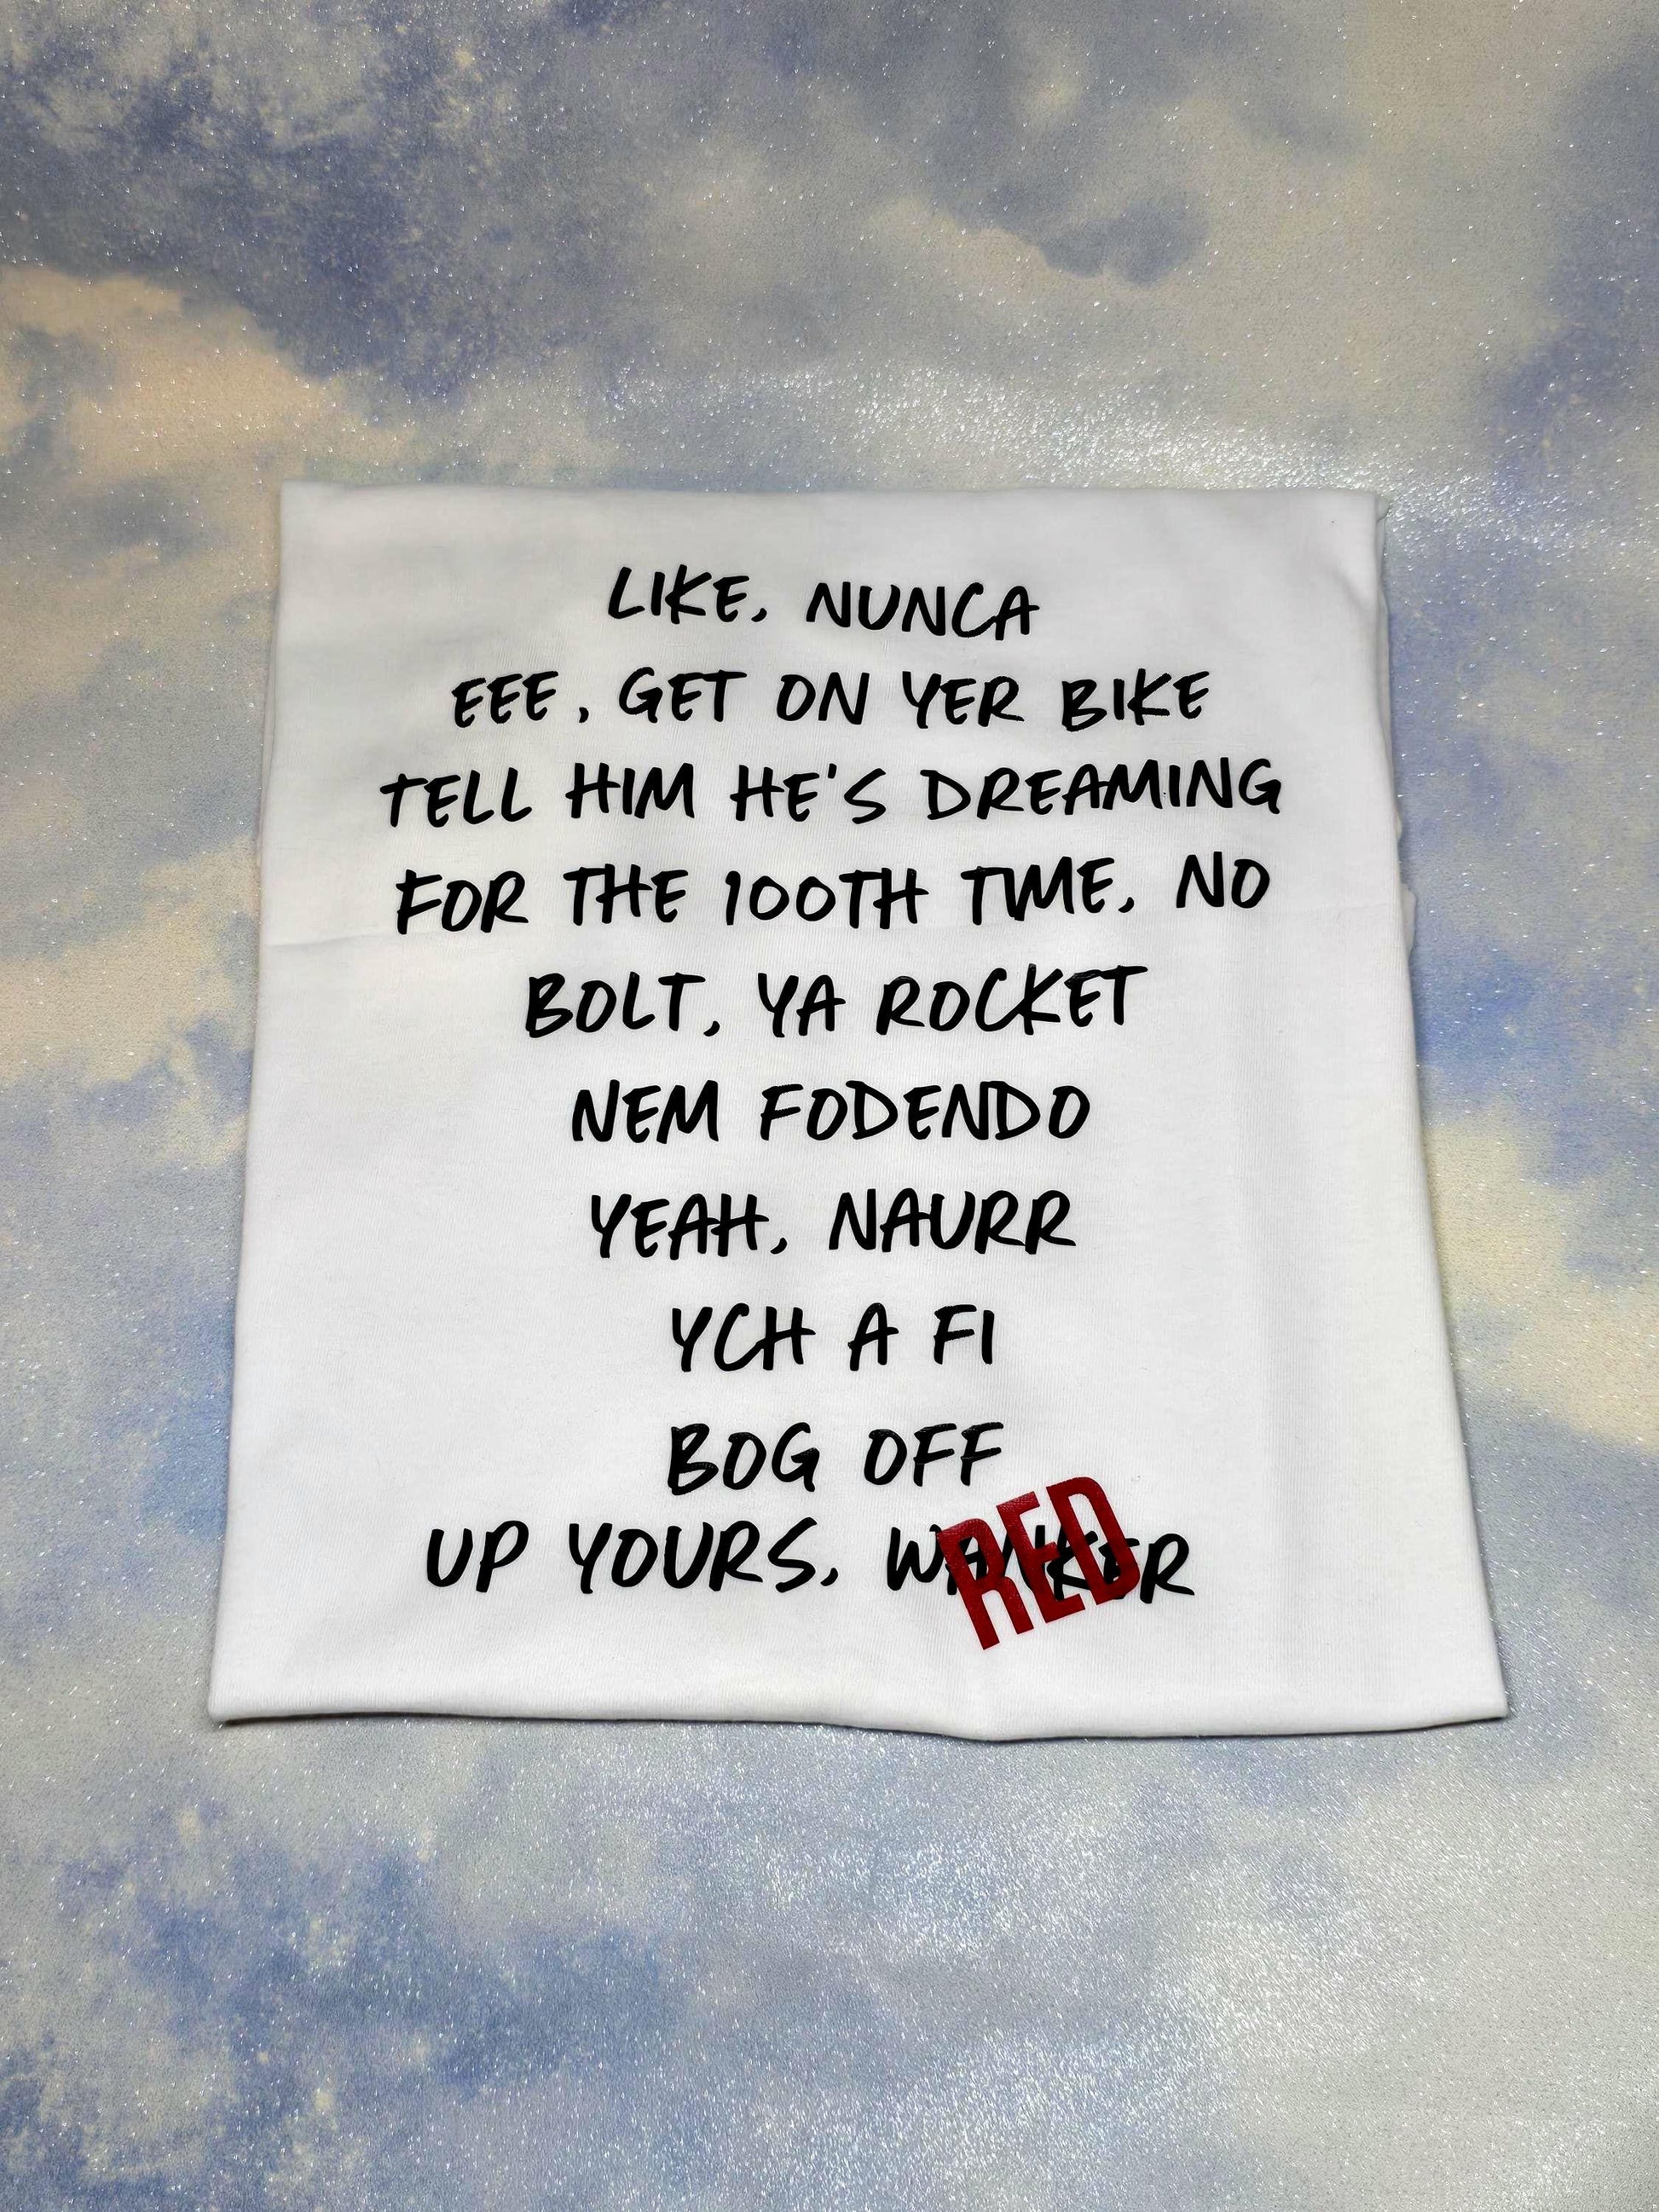 LIKE, NUNCA
EEE, GET ON YER BIKE
TELL HIM HE'S DREAMING
FOR THE 100TH TIME, NO
BOLT, YA ROCKET
NEM FODENDO
YEAH, NAURR
YCH A FI
BOG OFF
UP YOURS, WANKER
RED